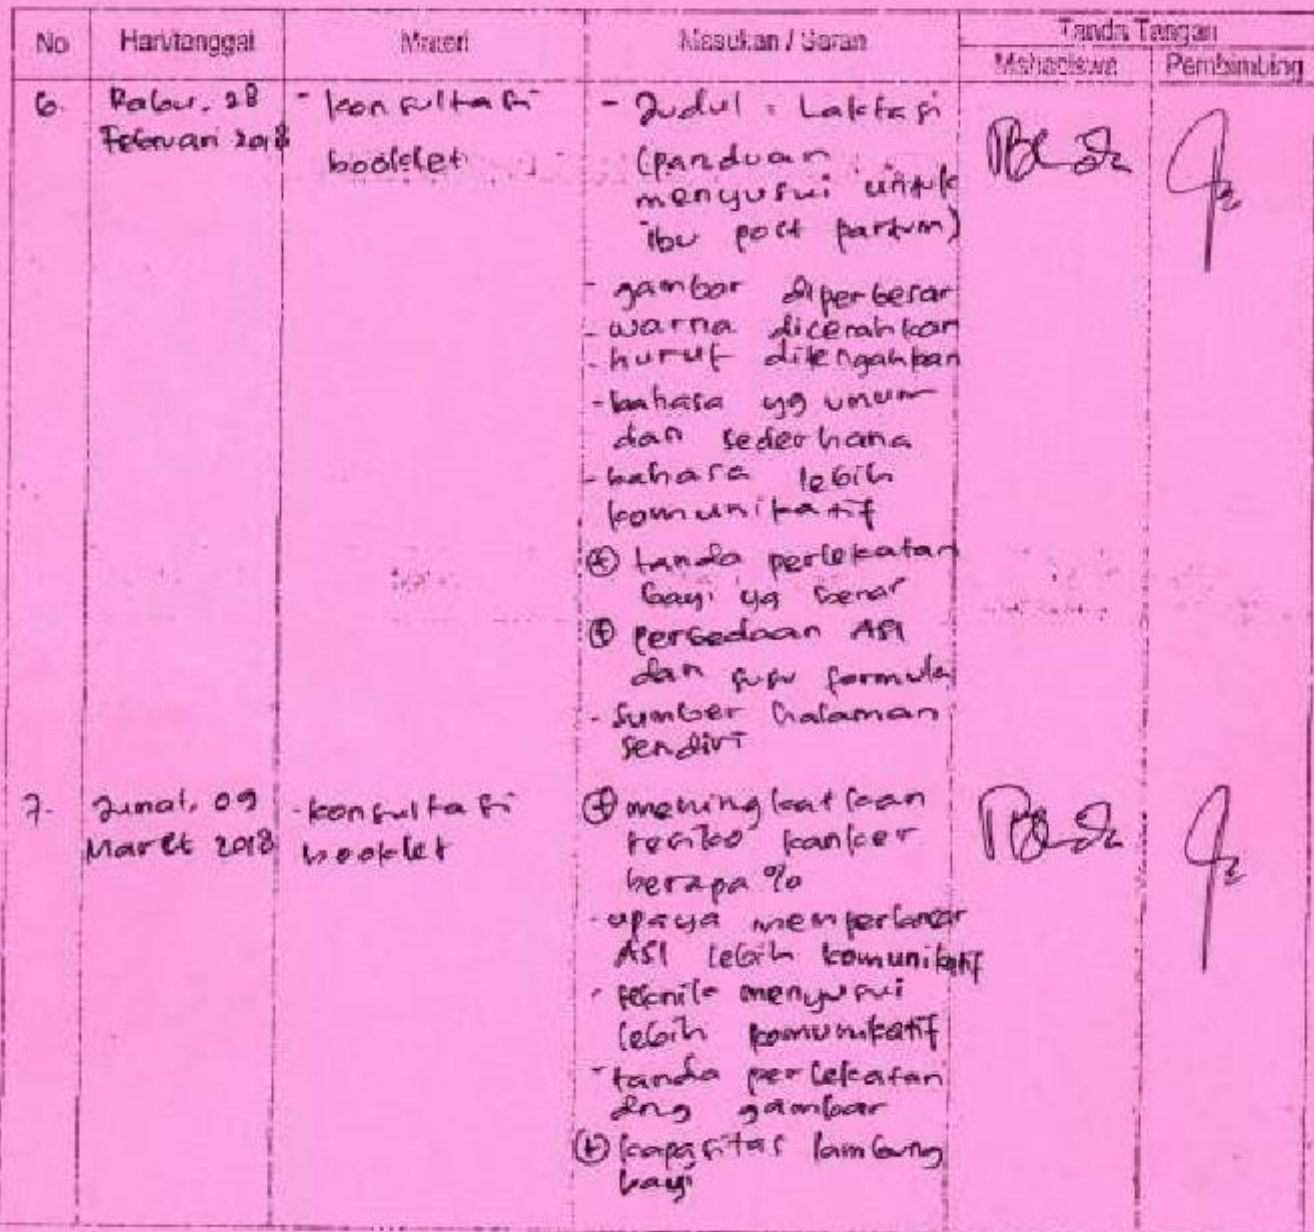 No Hari/tanggal Materi Masukan / Saran Tanda Tangan
Mahasiswa Pembimbing
6. Rabu, 28 - konsultasi - Judul : Laktasi
Februari 2018 booklet (panduan
menyusui untuk
ibu post partum)
- gambar diperbesar
- warna dicerahkan
- huruf ditengahkan
- bahasa yg umum
dan sederhana
- bahasa lebih
komunikatif
⊕ tanda perlekatan
bayi yg benar
⊕ perbedaan ASI
dan susu formula
- sumber halaman
sendiri
7. Jumat, 09 - konsultasi ⊕ meningkatkaan
Maret 2018 booklet resiko kanker
berapa %
- upaya memperlancar
ASI lebih komunikatif
- teknik menyusui
lebih komunikatif
- tanda perlekatan
dng gambar
⊕ kapasitas lambung
bayi